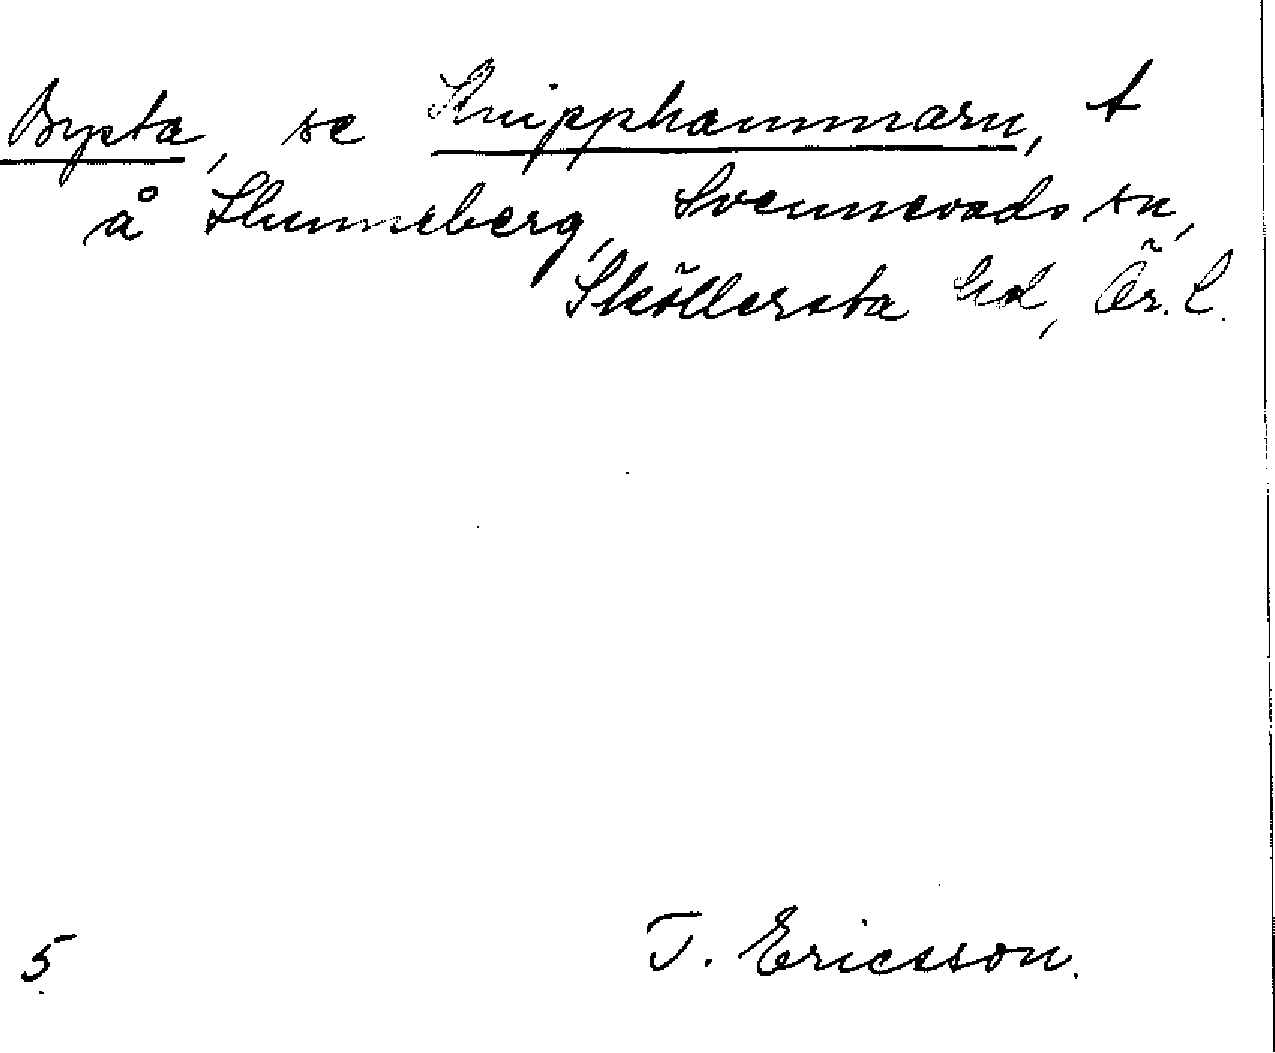 Bysta, se Knipphammarn, t
å Skumeberg, Svennevads sn,
Sköllersta hd, Ör. l.
5 T. Ericsson.